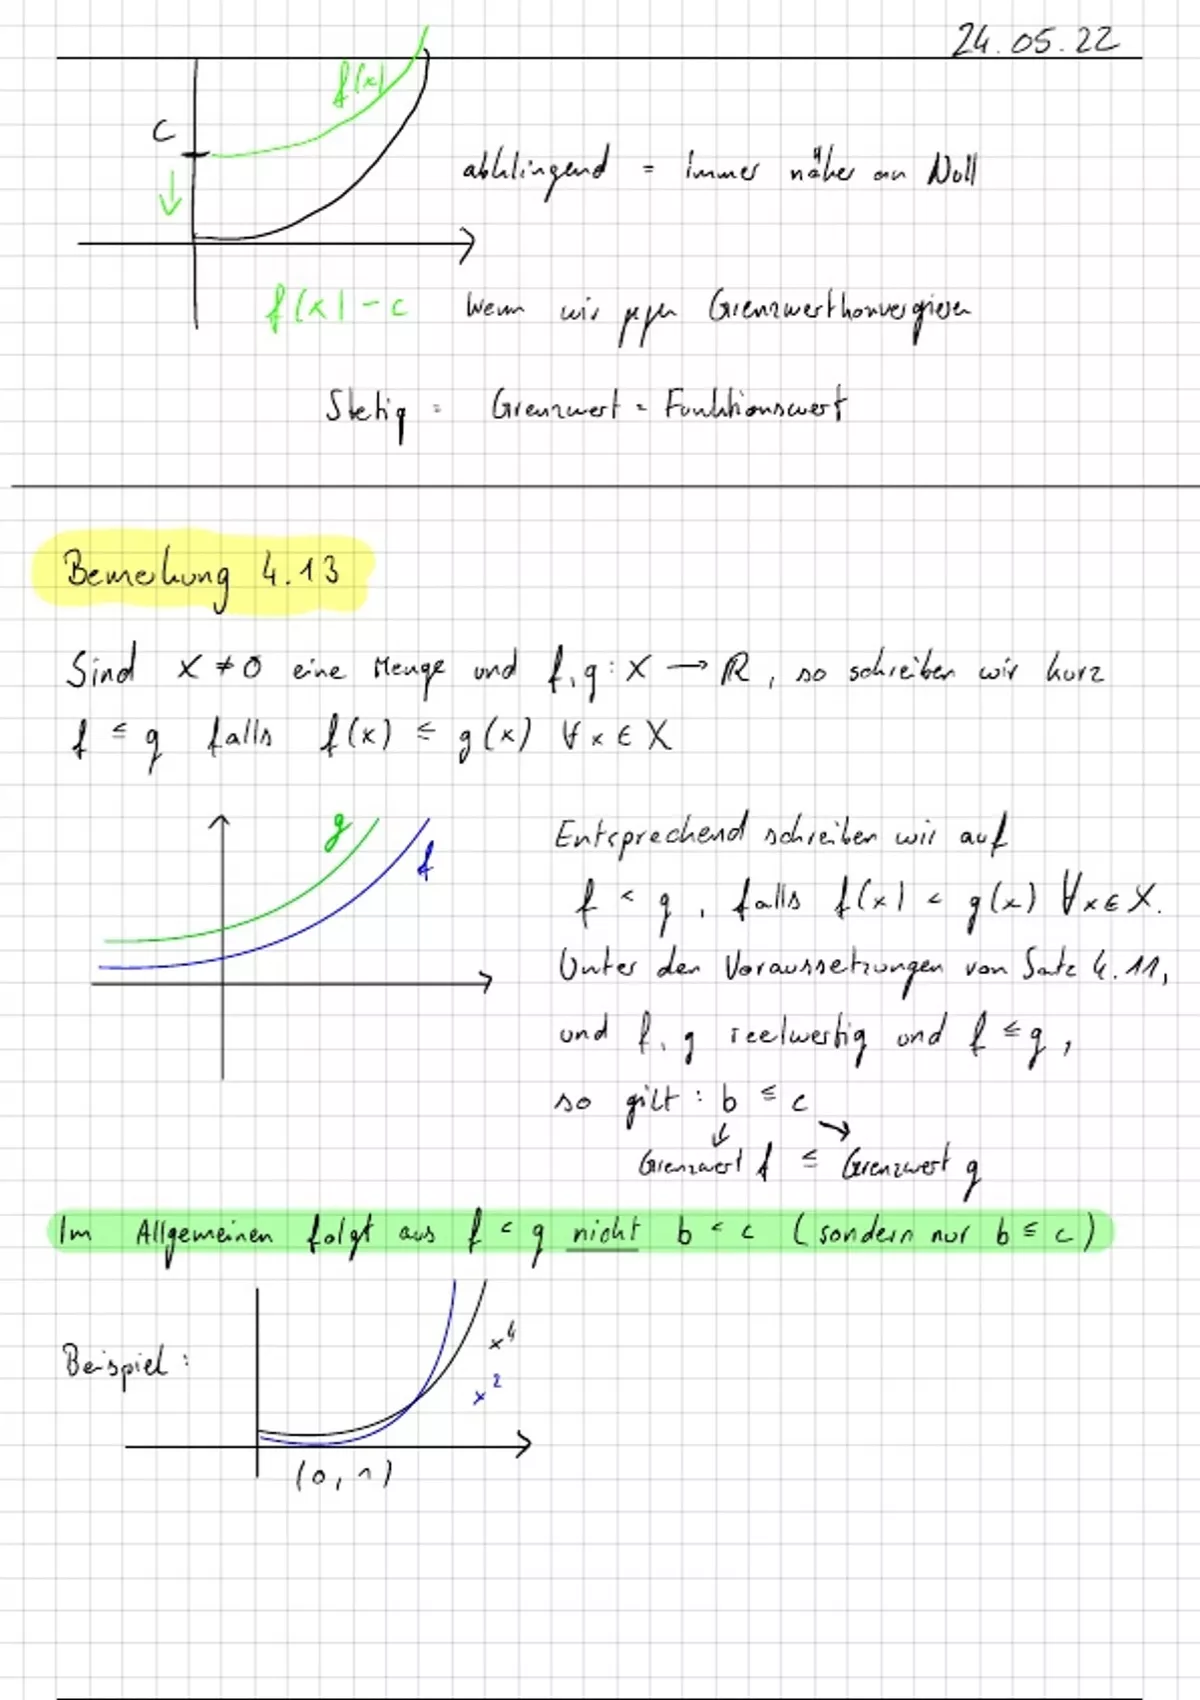 24.05.22
f(x)
C
abklingend = immer näher an Null
f(x) - c wenn wir gegen Grenzwertkonvergieren
Stetig = Grenzwert = Funktionswert
Bemerkung 4.13
Sind X ≠ 0 eine Menge und f, g : X → ℝ, so schreiben wir kurz
f ≤ g falls f(x) ≤ g(x) ∀ x ∈ X
g
f
Entsprechend schreiben wir auf
f < g, falls f(x) < g(x) ∀ x ∈ X.
Unter den Voraussetzungen von Satz 4.11,
und f, g reelwertig und f ≤ g,
so gilt : b ≤ c
Grenzwert f ≤ Grenzwert g
Im Allgemeinen folgt aus f < g nicht b < c (sondern nur b ≤ c)
Beispiel :
x⁴
x²
(0, 1)